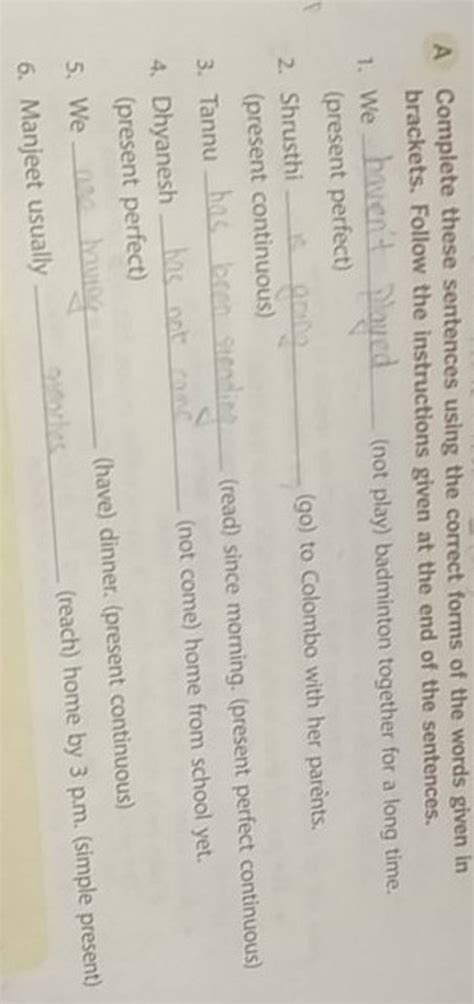 A Complete these sentences using the correct forms of the words given in
brackets. Follow the instructions given at the end of the sentences.
1. We haven't played (not play) badminton together for a long time.
(present perfect)
2. Shrusthi is going (go) to Colombo with her parents.
(present continuous)
3. Tannu has been reading (read) since morning. (present perfect continuous)
4. Dhyanesh has not come (not come) home from school yet.
(present perfect)
5. We having (have) dinner. (present continuous)
6. Manjeet usually reaches (reach) home by 3 p.m. (simple present)